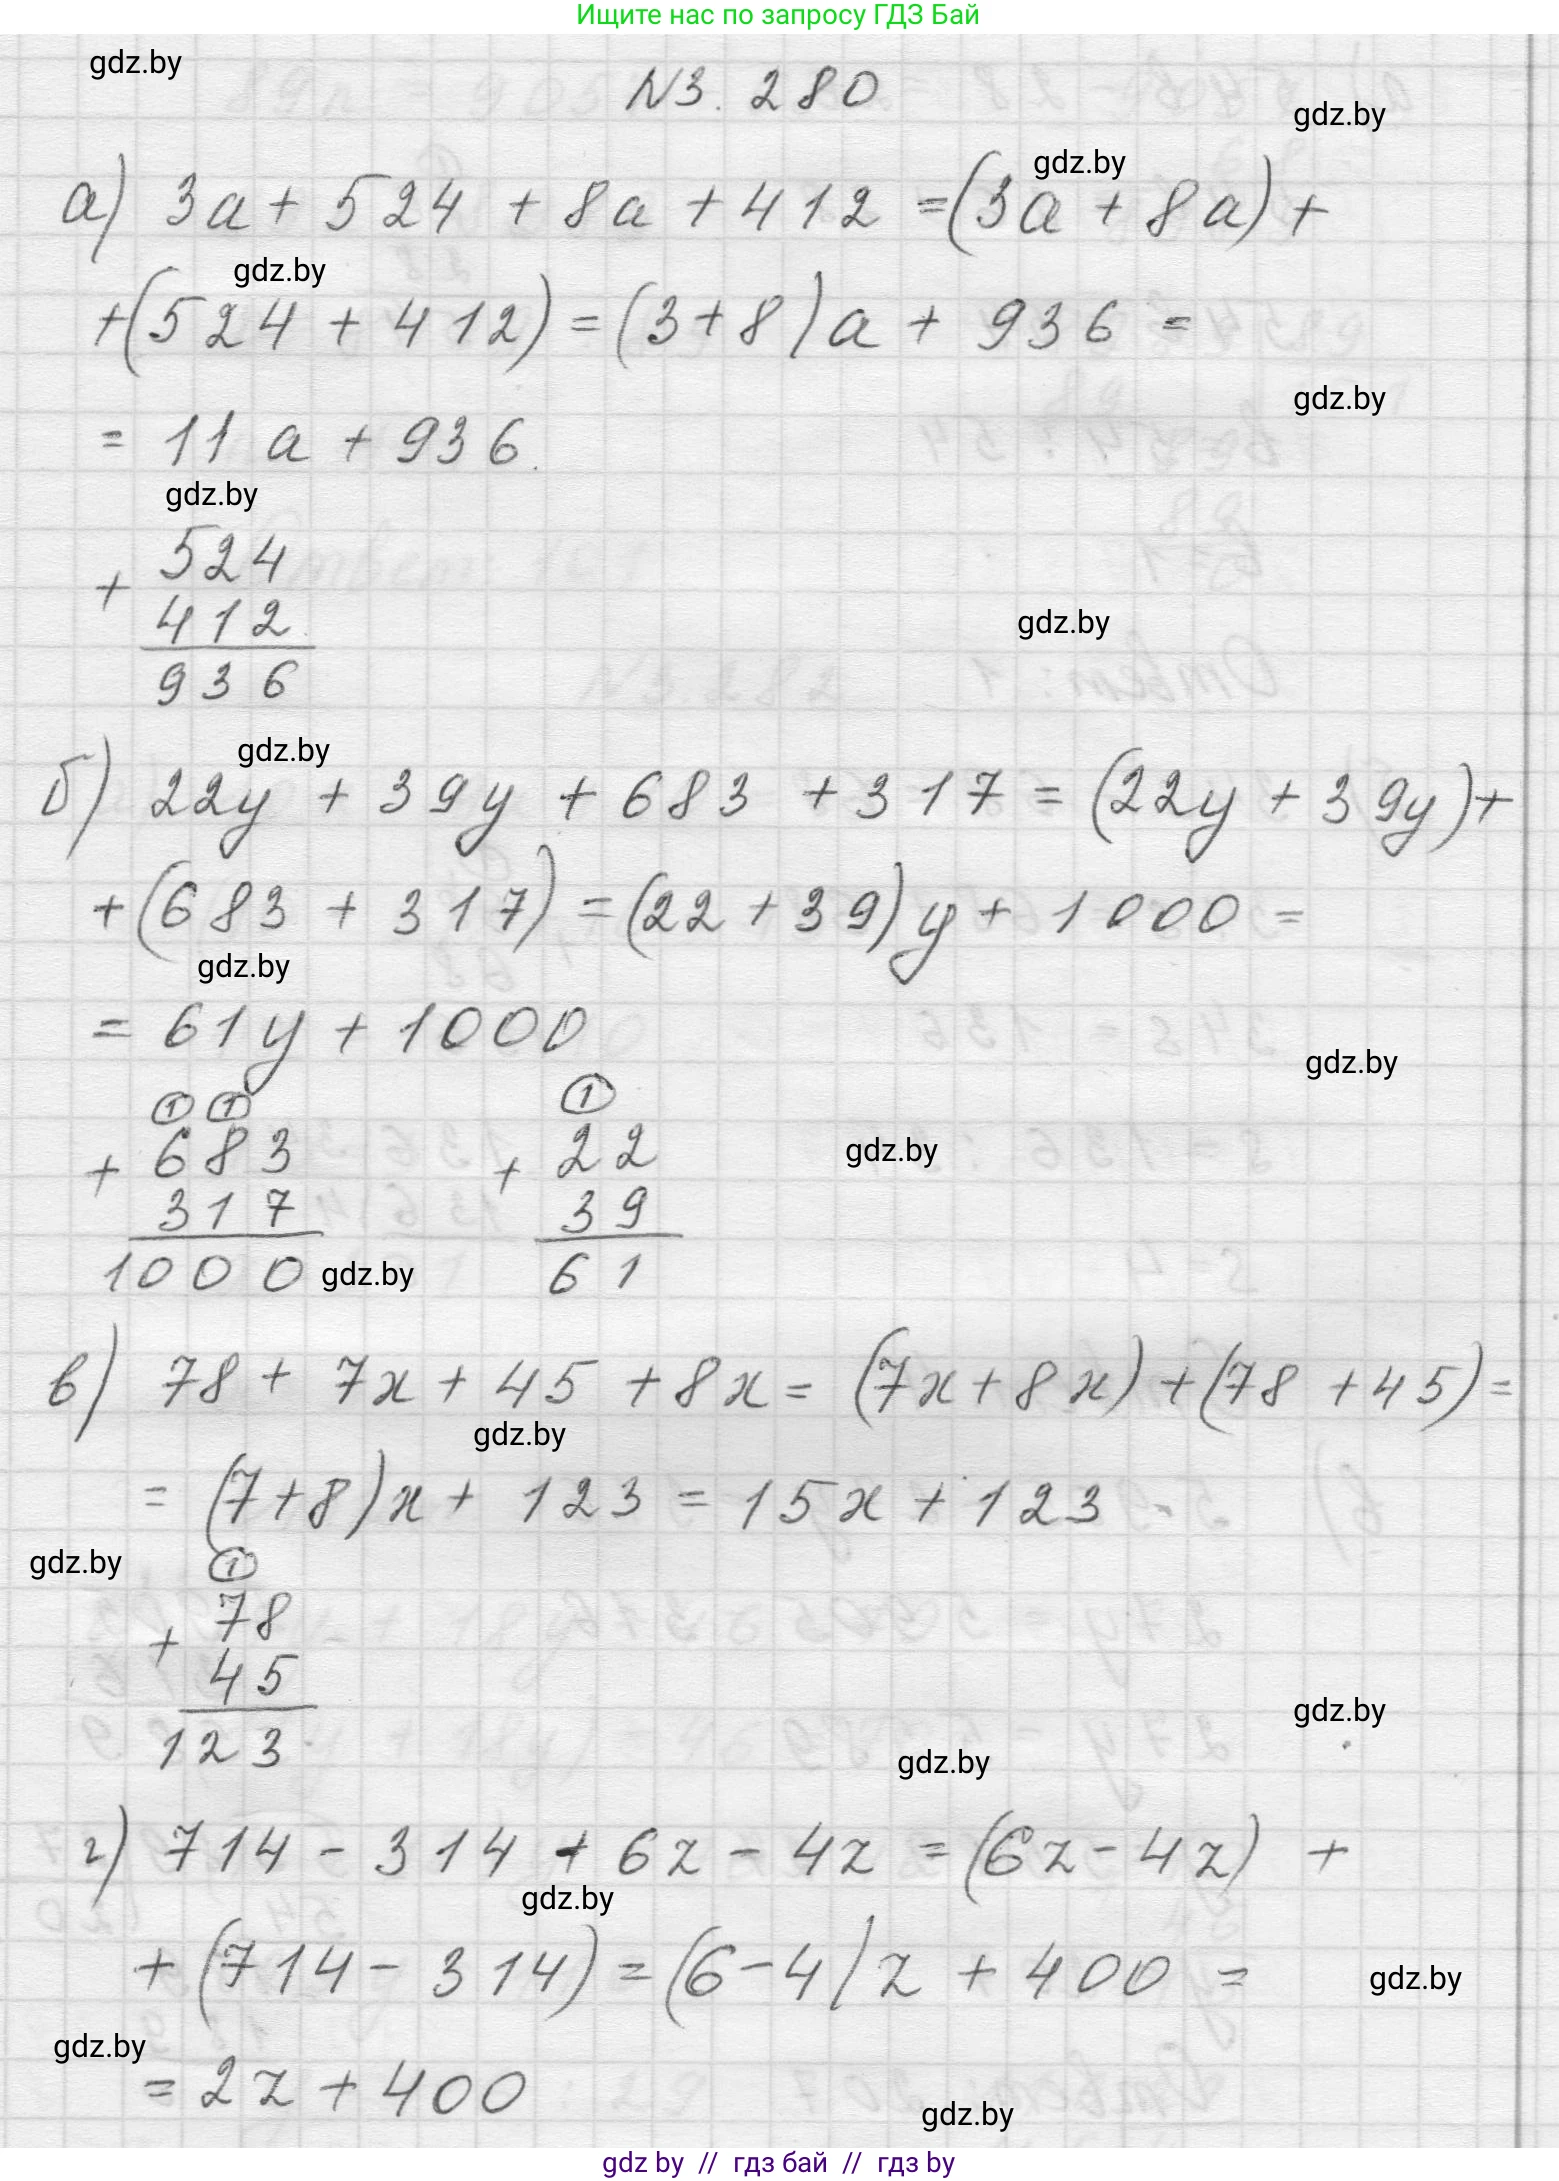 Ищите нас по запросу ГДЗ Бай
gdz.by
N3.280
gdz.by
gdz.by
а) 3a + 524 + 8a + 412 = (3a + 8a) +
gdz.by
+ (524 + 412) = (3 + 8)a + 936 =
gdz.by
= 11a + 936.
gdz.by
524
+
412
936
gdz.by
gdz.by
б) 22y + 39y + 683 + 317 = (22y + 39y) +
+ (683 + 317) = (22 + 39)y + 1000 =
gdz.by
= 61y + 1000
gdz.by
1 1 1
683 22
+ +
gdz.by
317 39
1000 61
gdz.by
в) 78 + 7x + 45 + 8x = (7x + 8x) + (78 + 45) =
gdz.by
= (7 + 8)x + 123 = 15x + 123.
gdz.by
1
78
+
45
123
gdz.by
gdz.by
г) 714 - 314 + 6z - 4z = (6z - 4z) +
gdz.by
+ (714 - 314) = (6 - 4)z + 400 =
gdz.by
gdz.by
= 2z + 400
gdz.by
gdz by // гдз бай // gdz by